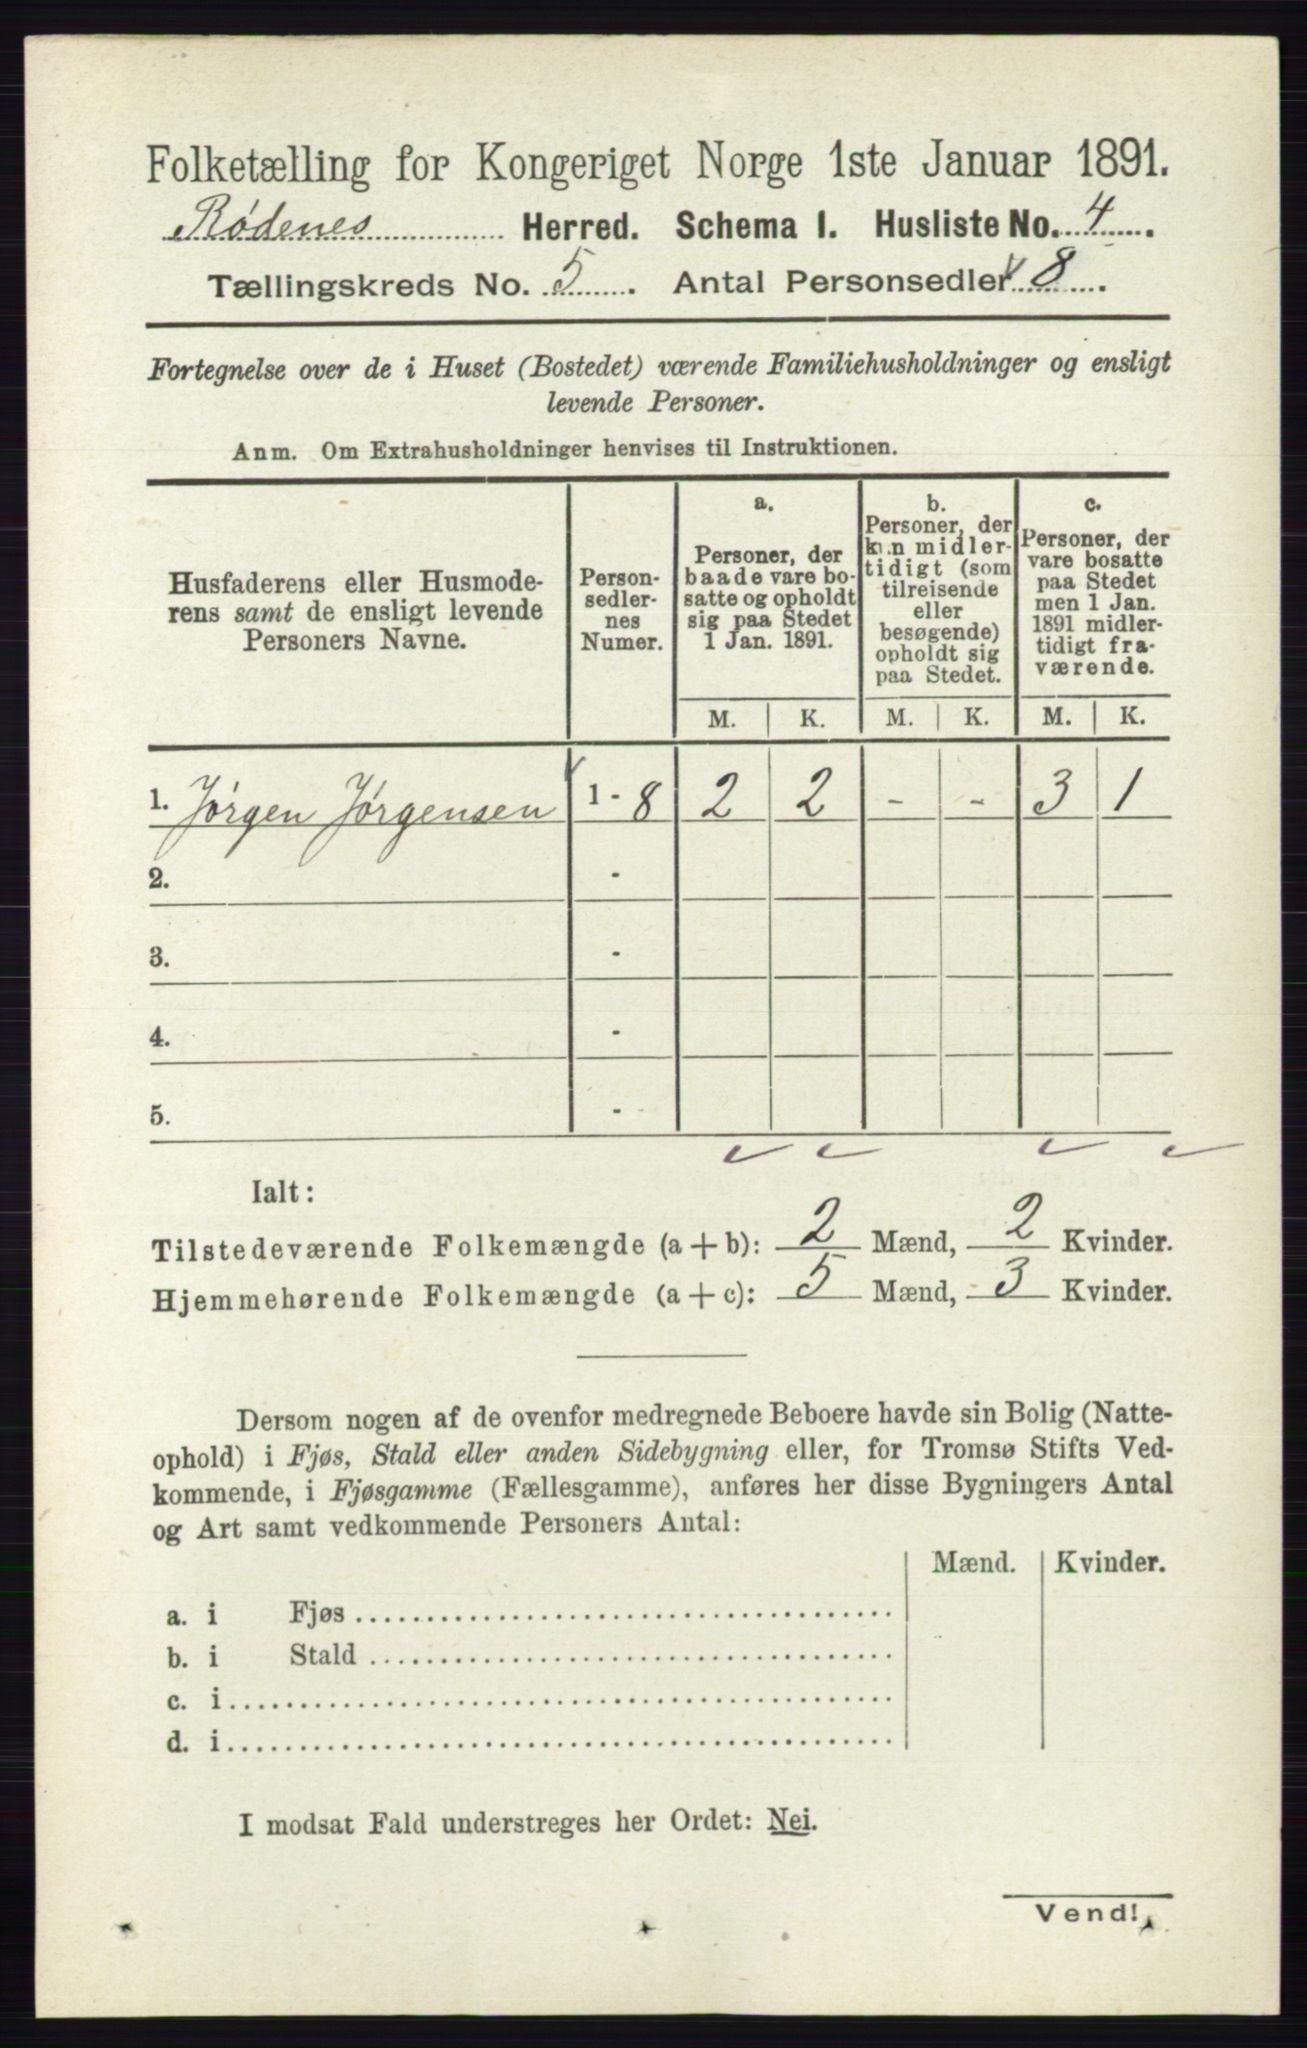 Folketælling for Kongeriget Norge 1ste Januar 1891.
Rødenes Herred. Schema 1. Husliste No. 4.
Tællingskreds No. 5. Antal Personsedler 8.
Fortegnelse over de i Huset (Bostedet) værende Familiehusholdninger og ensligt
levende Personer.
Anm. Om Extrahusholdninger henvises til Instruktionen.
Husfaderens eller Husmode-
rens samt de ensligt levende
Personers Navne.
Person-
sedler-
nes
Numer.
a.
Personer, der
baade vare bo-
satte og opholdt
sig paa Stedet
1 Jan. 1891.
b.
Personer, der
kun midler-
tidigt (som
tilreisende
eller
besøgende)
opholdt sig
paa Stedet.
c.
Personer, der
vare bosatte
paa Stedet
men 1 Jan.
1891 midler-
tidigt fra-
værende.
M. K. M. K. M. K.
1. Jørgen Jørgensen 1 - 8 2 2 - - 3 1
2. -
3. -
4. -
5. -
Ialt:
Tilstedeværende Folkemængde (a + b): 2 Mænd, 2 Kvinder.
Hjemmehørende Folkemængde (a + c): 5 Mænd, 3 Kvinder.
Dersom nogen af de ovenfor medregnede Beboere havde sin Bolig (Natte-
ophold) i Fjøs, Stald eller anden Sidebygning eller, for Tromsø Stifts Ved-
kommende, i Fjøsgamme (Fællesgamme), anføres her disse Bygningers Antal
og Art samt vedkommende Personers Antal:
Mænd. Kvinder.
a. i Fjøs
b. i Stald
c. i
d. i
I modsat Fald understreges her Ordet: Nei.
Vend!